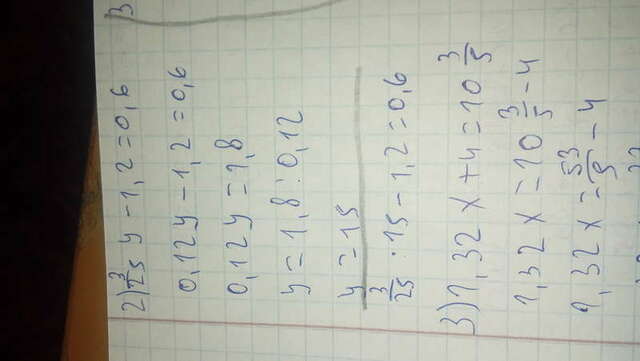 2) 3/25 y - 1,2 = 0,6
0,12y - 1,2 = 0,6
0,12y = 1,8
y = 1,8 : 0,12
y = 15
3/25 · 15 - 1,2 = 0,6
3) 1,32x + 4 = 10 3/5
1,32x = 10 3/5 - 4
1,32x = 53/5 - 4